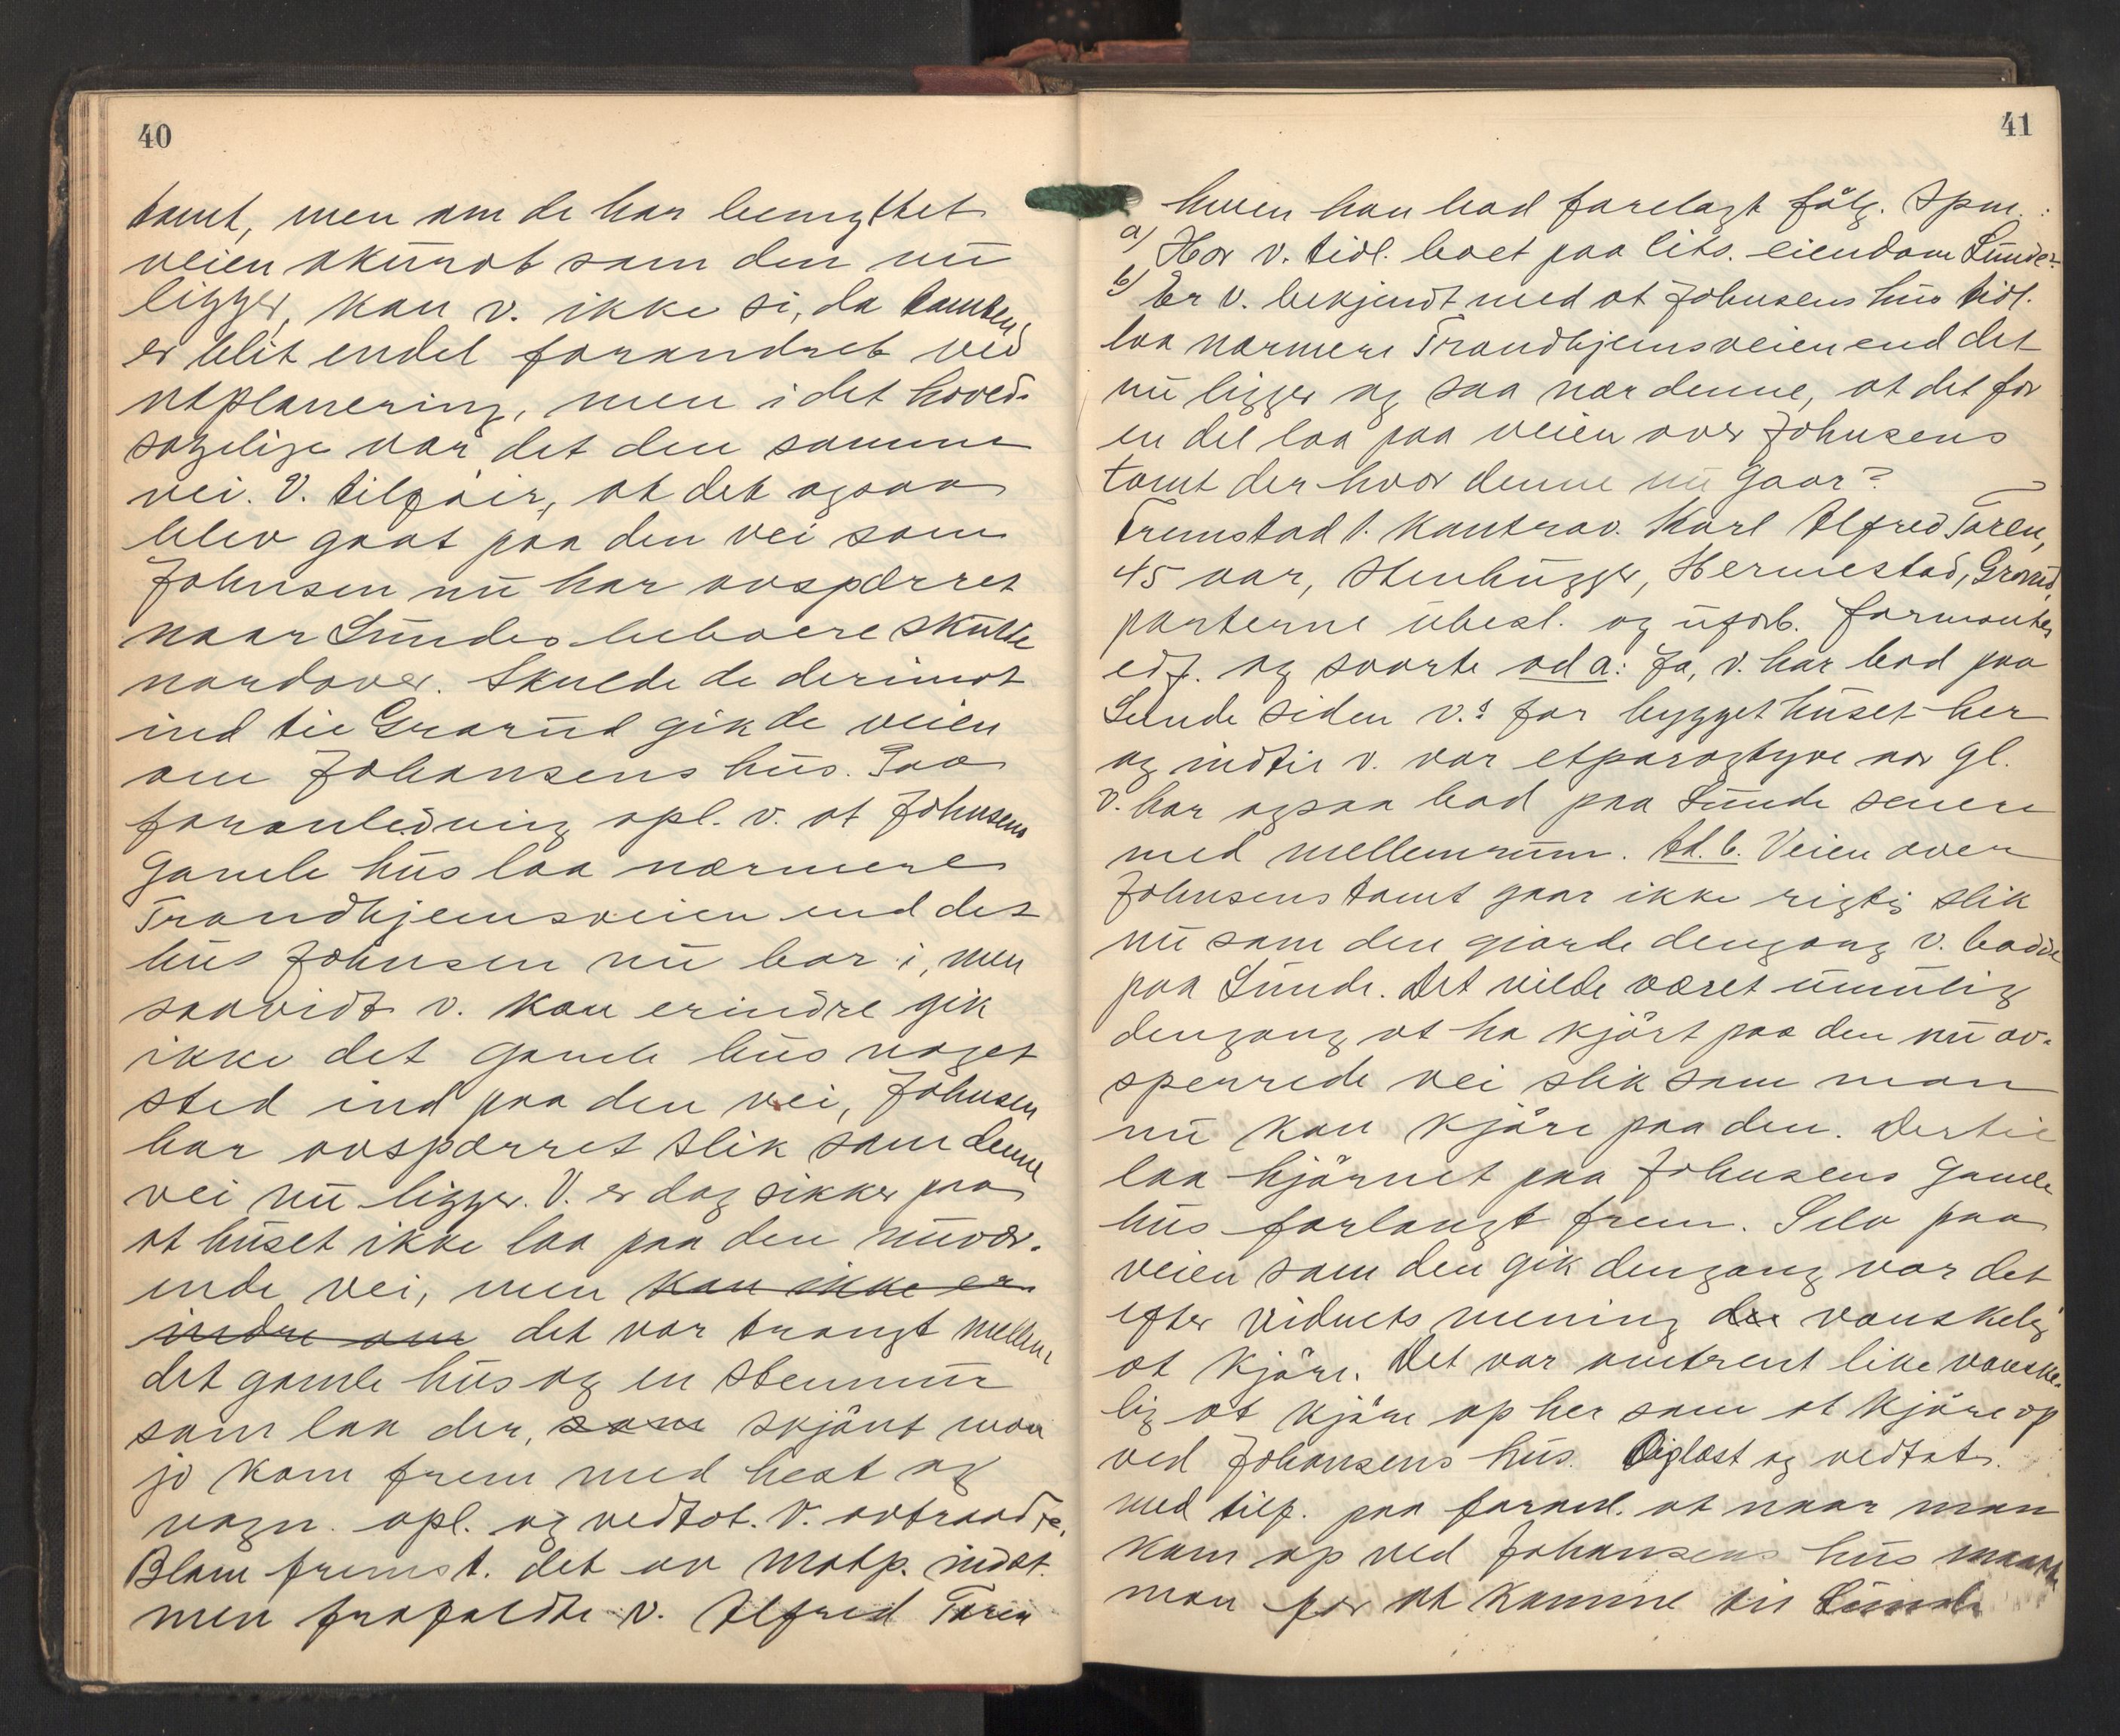 40
tomt, men om de har benyttet
veien akurat som den nu
ligger, kan v. ikke si, da tomten
er blit endel forandret ved
utplanering, men i det hoved-
sagelige var det den samme
vei. V. tilføier, at det ogsaa
blev gaat paa den vei som
Johnsen nu har avspærret
naar Sundes beboere skulde
nordover. Skulde de derimot
ind til Grorud gik de veien
om Johansens hus. Paa
foranledning opl. v. at Johnsens
gamle hus laa nærmere
Trondhjemsveien end det
hus Johnsen nu bor i, men
saavidt v. kan erindre gik
ikke det gamle hus noget
sted ind paa den vei, Johnsen
har avspærret slik som denne
vei nu ligger. V. er dog sikker paa
at huset ikke laa paa den nuvær-
ende vei, men kan ikke er-
indre om det var trangt mellem
det gamle hus og en stenmur
som laa der, som skjønt man
jo kom frem med hest og
vogn. opl. og vedtat. V. avtraadte.
Blom fremst. det av motp. indst.
men frafaldte v. Alfred Toren
41
hvem han bad forelagt følg. Spm.:
a) Har v. tidl. boet paa cits. eiendom Sunde?
b) Er v. bekjendt med at Johnsens hus tidl.
laa nærmere Trondhjemsveien end det
nu ligger og saa nær denne, at det for
en del laa paa veien over Johnsens
tomt der hvor denne nu gaar?
Fremstod 1. kontrav. Karl Alfred Toren,
45 aar, Stenhugger, Hermestad, Grorud,
parterne ubesl. og uforb. formantes
edf. og svarte ad a: Ja, v. har bod paa
Sunde siden v.s far bygget huset her
og indtil v. var etparogtyve aar gl.
V. har ogsaa bod paa Sunde senere
med mellemrum. Ad. b. Veien over
Johnsens tomt gaar ikke rigtig slik
nu som den gjorde dengang v. bodde
paa Sunde. Det vilde været umulig
dengang at ha kjørt paa den nu av-
sperrede vei slik som man
nu kan kjøre paa den. Dertil
laa hjørnet paa Johnsens gamle
hus forlangt frem. Selv paa
veien som den gik dengang var det
efter vidnets mening der vanskelig
at kjøre. Det var omtrent like vanske-
lig at kjøre op her som at kjøre op
ved Johansens hus. Oplæst og vedtat.
med tilf. paa foranl. at naar man
kom op ved Johansens hus maatte
man for at komme til Sunde